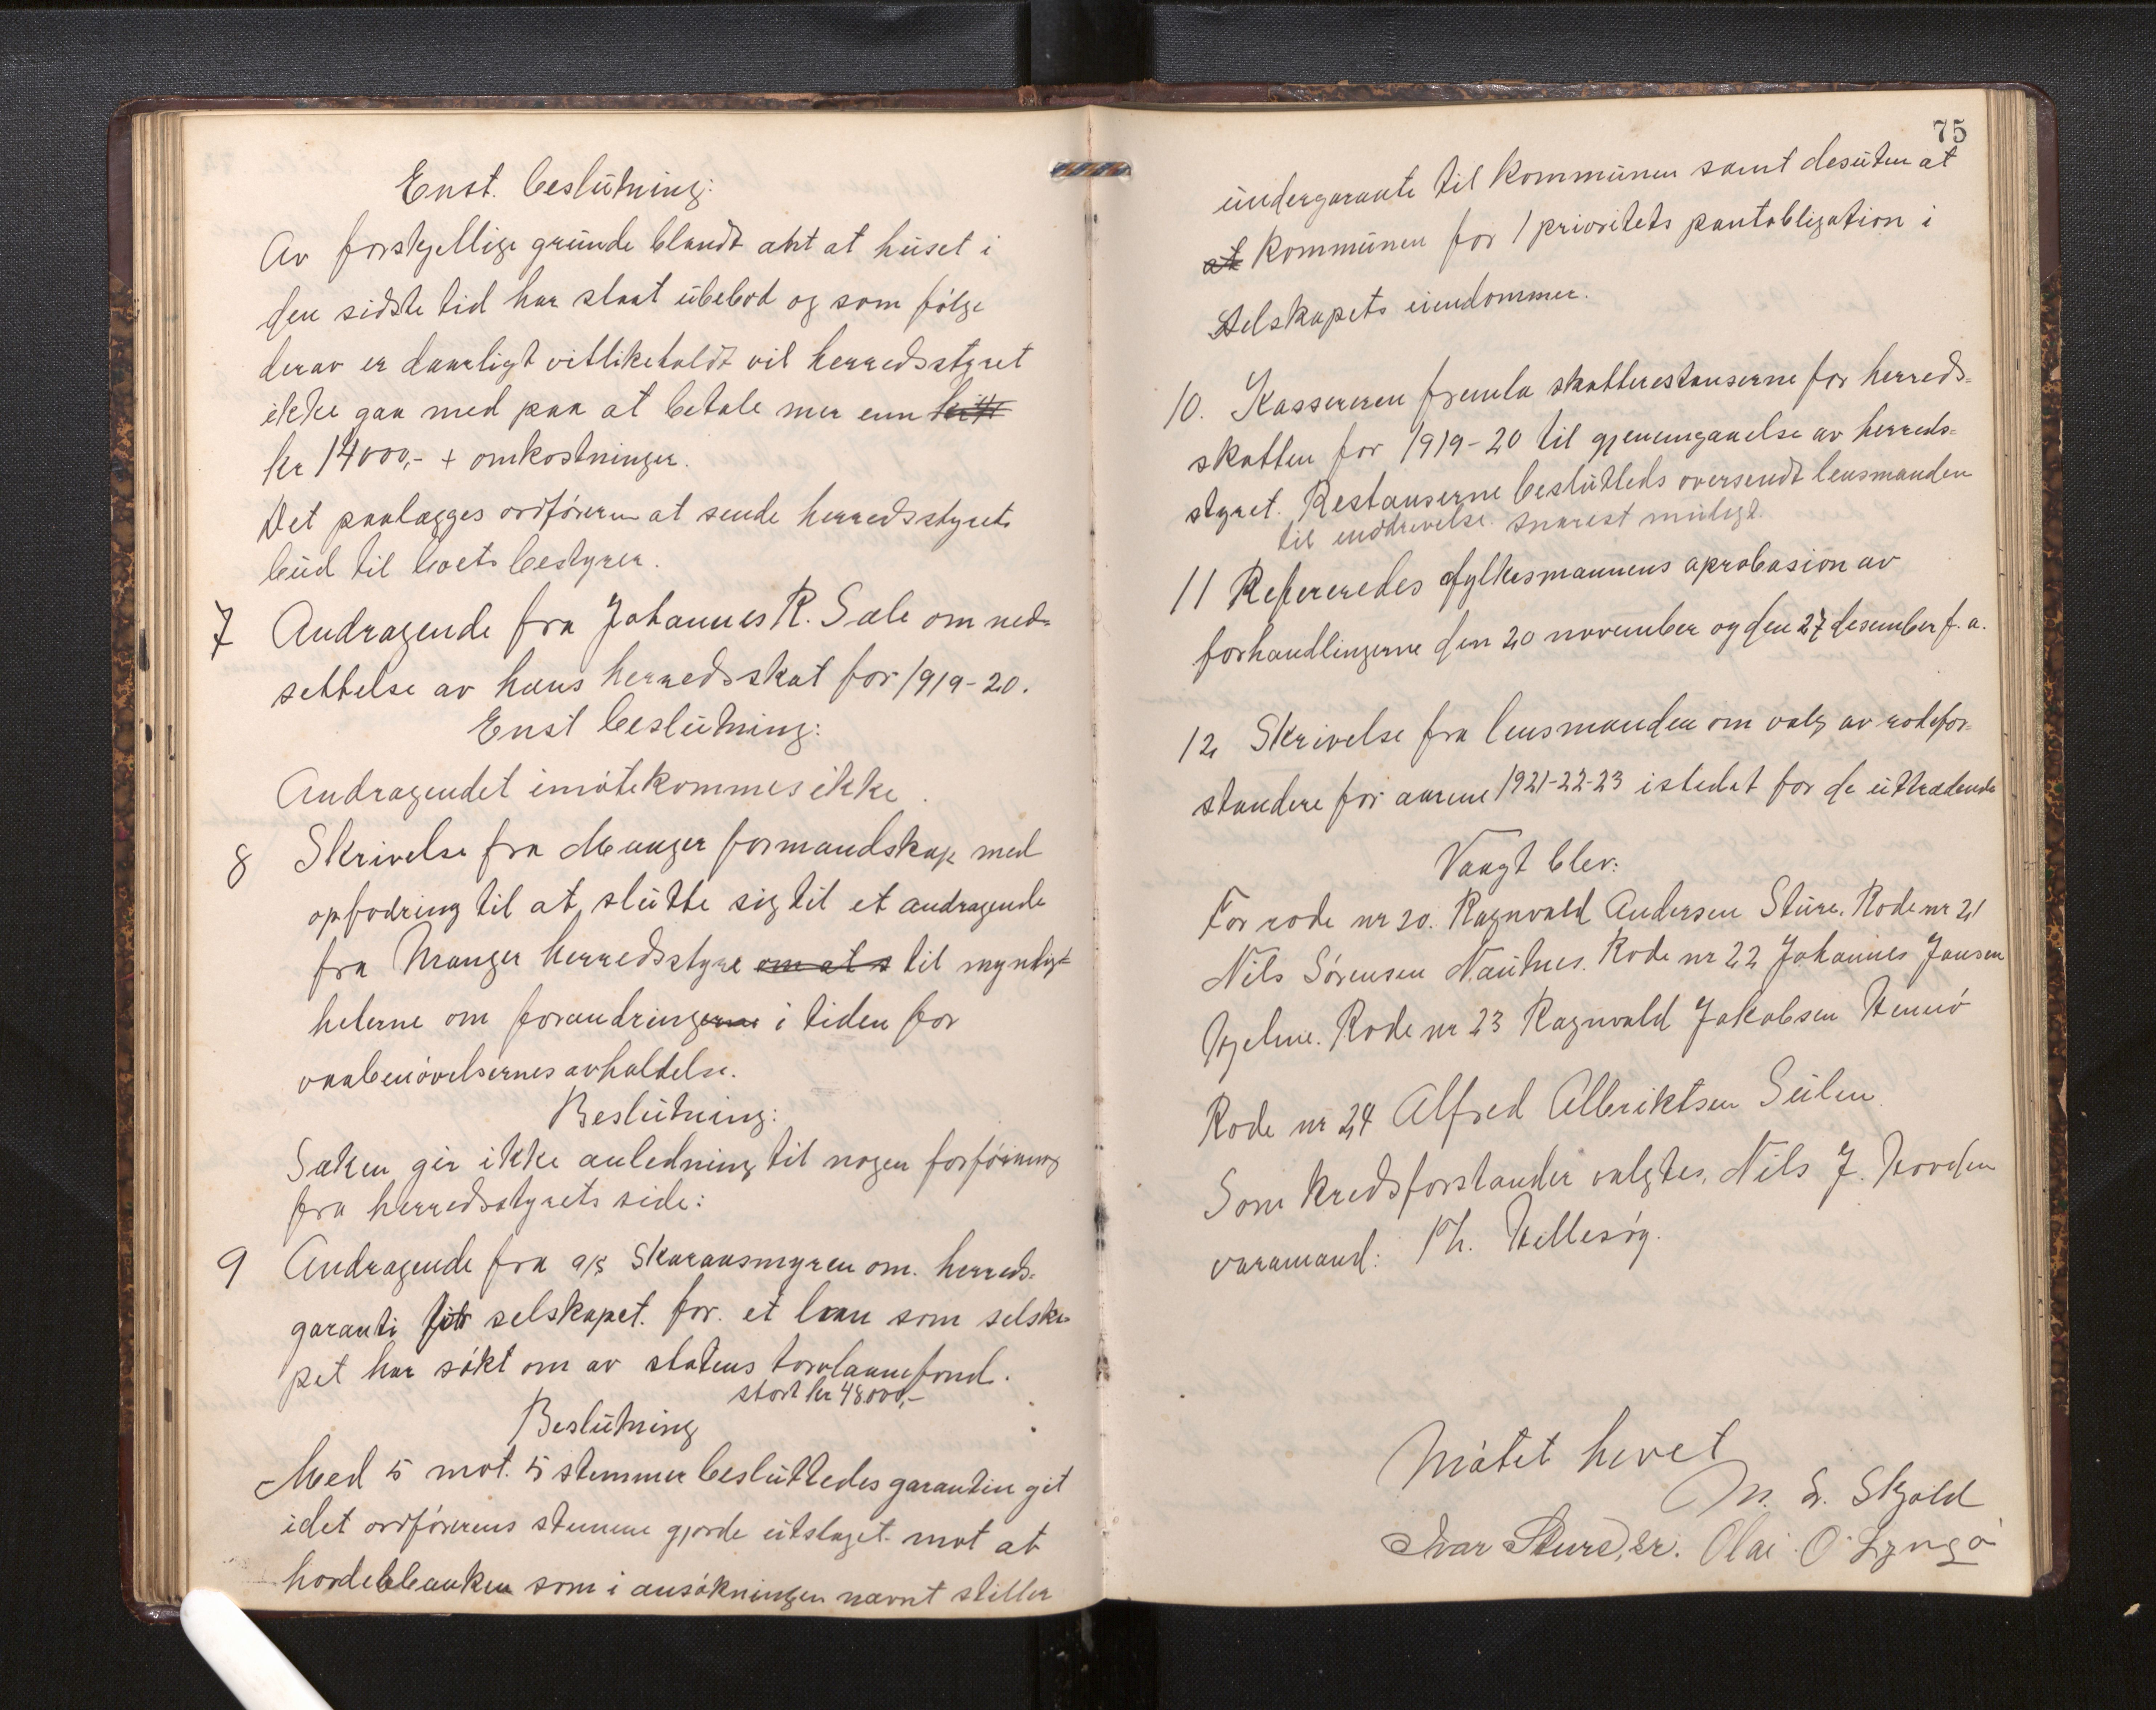 Enst. beslutning:
Av forskjellige grunde blandt ant at huset i
den sidste tid har staat ubebod og som følge
derav er daarligt vitlikeholdt vil herredsstyret
ikke gaa med paa at betale mer enn
kr 14000,- + omkostninger.
Det paalægges ordføreren at sende herredsstyrets
bud til boets bestyrer.
7 Andragende fra Johannes R. Sæle om ned-
settelse av hans herredsskat for 1919-20.
Enst beslutning:
Andragendet imøtekommes ikke.
8 Skrivelse fra Manger formandskap med
opfodring til at slutte sig til et andragende
fra Manger herredsstyre om at s til myndig-
heterne om forandringerne i tiden for
vaabenøvelsernes avholdelse.
Beslutning:
Saken gir ikke anledning til nogen forføining
fra herredsstyrets side:
9 Andragende fra a/s Skaraasmyren om herreds-
garanti for selskapet for et laan som selska-
pet har søkt om av statens torvlaanefond.
stort kr 48000,-
Beslutning
Med 5 mot 5 stemmer besluttedes garantien git
idet ordførerens stemme gjorde utslaget mot at
hordebbanken som i ansøkningen nævnt stiller
75
undergarante til kommunen samt desuten at
at kommunen for 1 prioritets pantobligation i
selskapets eiendommer.
10. Kassereren fremla skatterestanserne for herreds-
skatten for 1919-20 til gjenemgaaelse av herreds-
styret. Restanserne besluttedes oversendt lensmanden
til inddrivelse snarest muligt.
11 Refereredes fylkesmannens aprobasion av
forhandlingerne den 20 november og den 27 desember f.a.
12 Skrivelse fra lensmanden om valg av rodefor-
standere for aarene 1921-22-23 istedet for de uttrædende
Vaagt blev:
For rode nr 20. Ragnvald Andersen Sture. Rode nr 21
Nils Sørensen Nautnes. Rode nr 22 Johannes Jansen
Hjelme. Rode nr 23 Ragnvald Jakobsen Hernø
Rode nr 24 Alfred Albriktsen Seilen.
Som kredsforstander valgtes, Nils J. Hovden
varamand: Th. Hellesøy.
Møtet hevet
M. S. Skjold
Ivar Sture, sr. Olai O Lyngø